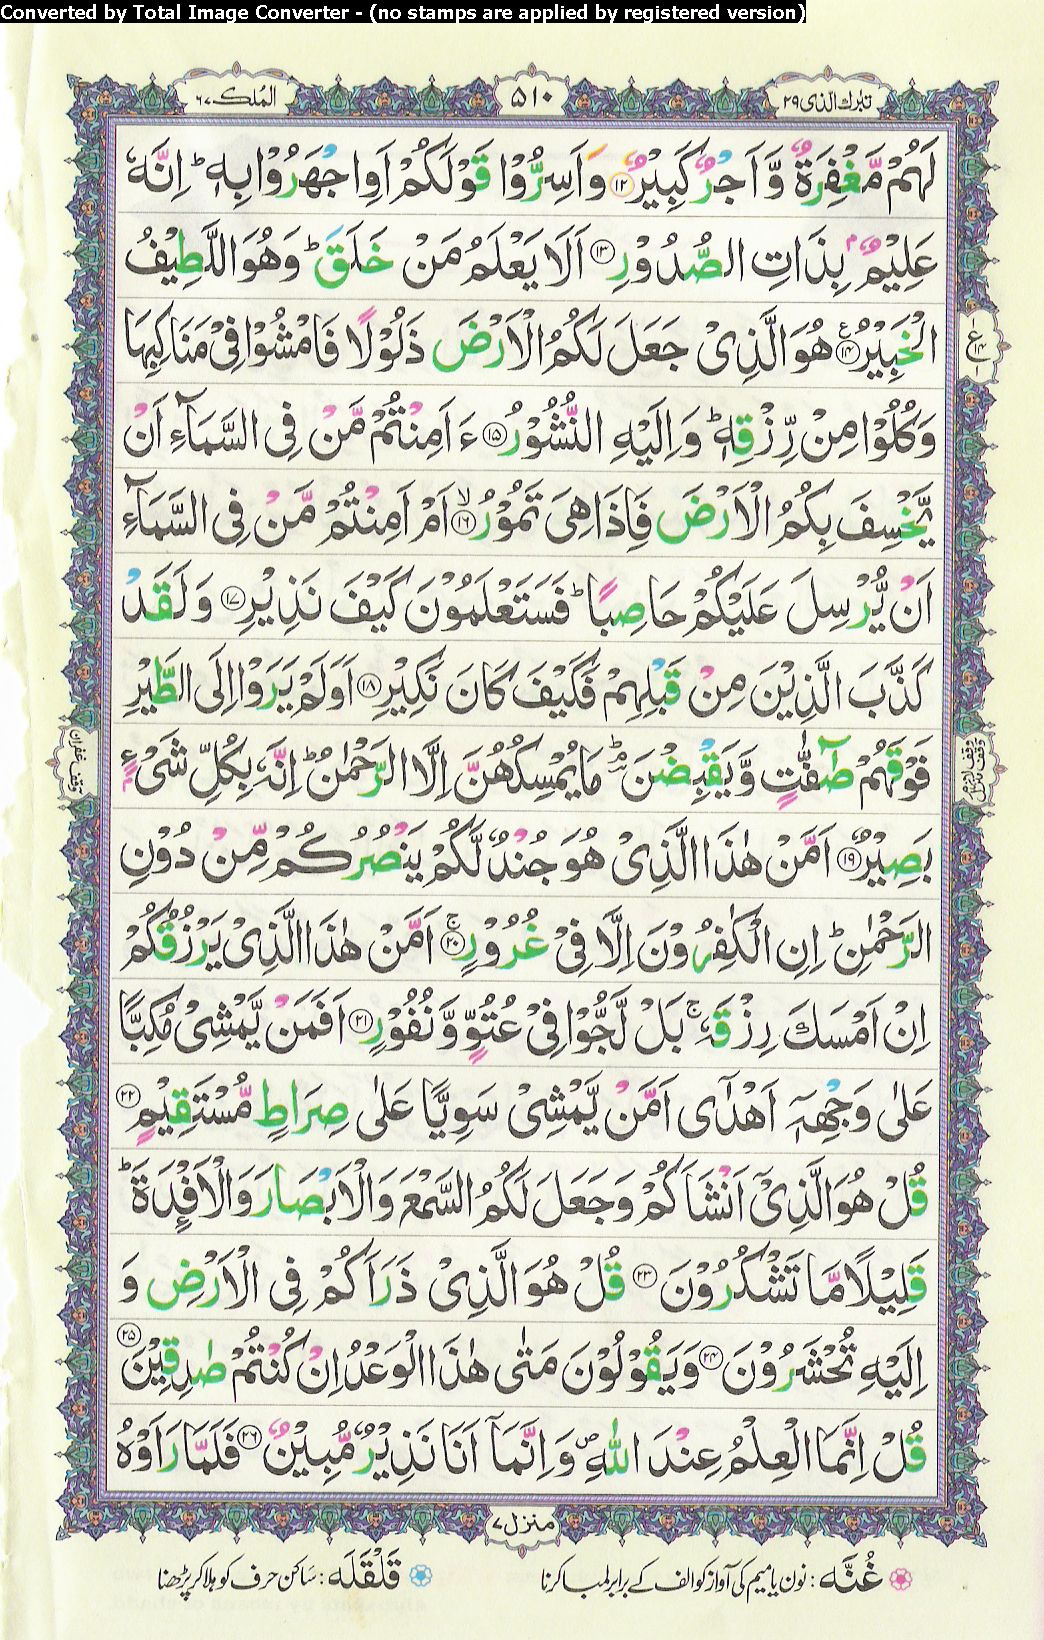 Converted by Total Image Converter - (no stamps are applied by registered version)
تبٰرك الذی ٢٩
٥١٠
الملك ٦٧
لَهُمْ مَّغْفِرَةٌ وَّاَجْرٌ كَبِيْرٌ ﴿١٢﴾ وَاَسِرُّوْا قَوْلَكُمْ اَوِ اجْهَرُوْا بِهٖ ؕ اِنَّهٗ
عَلِيْمٌۢ بِذَاتِ الصُّدُوْرِ ﴿١٣﴾ اَلَا يَعْلَمُ مَنْ خَلَقَ ؕ وَهُوَ اللَّطِيْفُ
الْخَبِيْرُ ﴿١٤﴾ هُوَ الَّذِیْ جَعَلَ لَكُمُ الْاَرْضَ ذَلُوْلًا فَامْشُوْا فِیْ مَنَاكِبِهَا
وَكُلُوْا مِنْ رِّزْقِهٖ ؕ وَاِلَيْهِ النُّشُوْرُ ﴿١٥﴾ ءَاَمِنْتُمْ مَّنْ فِی السَّمَآءِ اَنْ
يَّخْسِفَ بِكُمُ الْاَرْضَ فَاِذَا هِیَ تَمُوْرُ ۙ﴿١٦﴾ اَمْ اَمِنْتُمْ مَّنْ فِی السَّمَآءِ
اَنْ يُّرْسِلَ عَلَيْكُمْ حَاصِبًا ؕ فَسَتَعْلَمُوْنَ كَيْفَ نَذِيْرِ ﴿١٧﴾ وَلَقَدْ
كَذَّبَ الَّذِيْنَ مِنْ قَبْلِهِمْ فَكَيْفَ كَانَ نَكِيْرِ ﴿١٨﴾ اَوَلَمْ يَرَوْا اِلَی الطَّيْرِ
فَوْقَهُمْ صٰٓفّٰتٍ وَّيَقْبِضْنَ ؕ مَا يُمْسِكُهُنَّ اِلَّا الرَّحْمٰنُ ؕ اِنَّهٗ بِكُلِّ شَیْءٍۭ
بَصِيْرٌ ﴿١٩﴾ اَمَّنْ هٰذَا الَّذِیْ هُوَ جُنْدٌ لَّكُمْ يَنْصُرُكُمْ مِّنْ دُوْنِ
الرَّحْمٰنِ ؕ اِنِ الْكٰفِرُوْنَ اِلَّا فِیْ غُرُوْرٍ ۚ﴿٢٠﴾ اَمَّنْ هٰذَا الَّذِیْ يَرْزُقُكُمْ
اِنْ اَمْسَكَ رِزْقَهٗ ۚ بَلْ لَّجُّوْا فِیْ عُتُوٍّ وَّنُفُوْرٍ ﴿٢١﴾ اَفَمَنْ يَّمْشِیْ مُكِبًّا
عَلٰی وَجْهِهٖۤ اَهْدٰۤی اَمَّنْ يَّمْشِیْ سَوِيًّا عَلٰی صِرَاطٍ مُّسْتَقِيْمٍ ﴿٢٢﴾
قُلْ هُوَ الَّذِیْۤ اَنْشَاَكُمْ وَجَعَلَ لَكُمُ السَّمْعَ وَالْاَبْصَارَ وَالْاَفْـِٕدَةَ ؕ
قَلِيْلًا مَّا تَشْكُرُوْنَ ﴿٢٣﴾ قُلْ هُوَ الَّذِیْ ذَرَاَكُمْ فِی الْاَرْضِ وَ
اِلَيْهِ تُحْشَرُوْنَ ﴿٢٤﴾ وَيَقُوْلُوْنَ مَتٰی هٰذَا الْوَعْدُ اِنْ كُنْتُمْ صٰدِقِيْنَ ﴿٢٥﴾
قُلْ اِنَّمَا الْعِلْمُ عِنْدَ اللّٰهِ ۪ وَاِنَّمَاۤ اَنَا نَذِيْرٌ مُّبِيْنٌ ﴿٢٦﴾ فَلَمَّا رَاَوْهُ
ع ١٤
وقف غفران
منزل ٧
غُنَّه : نون یا میم کی آواز کو الف کے برابر لمبا کرنا
قَلْقَلَه : ساکن حرف کو ہلا کر پڑھنا